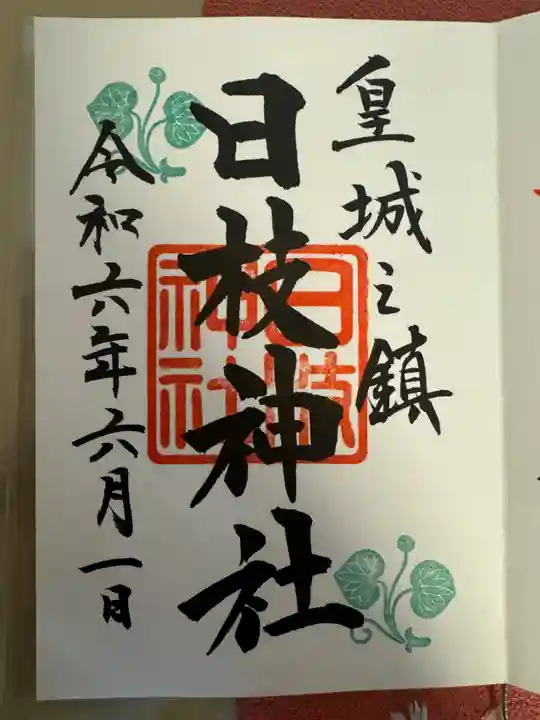 皇城之鎮
日枝神社
日枝
神社
令和六年六月一日